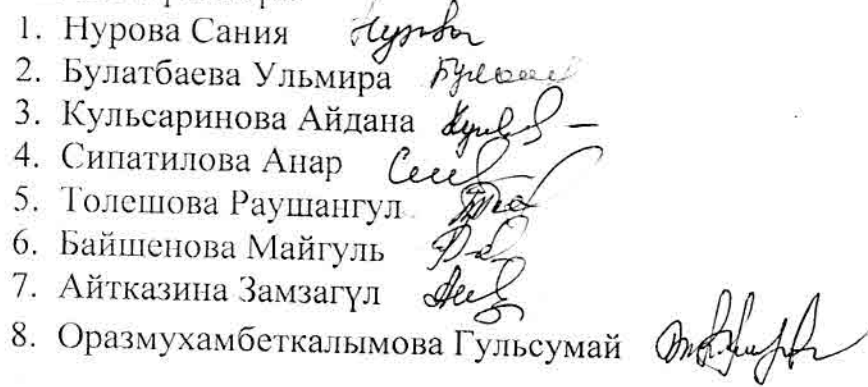 1. Нурова Сания
2. Булатбаева Ульмира
3. Кульсаринова Айдана
4. Сипатилова Анар
5. Толешова Раушангул
6. Байшенова Майгуль
7. Айтказина Замзагүл
8. Оразмухамбеткалымова Гульсумай